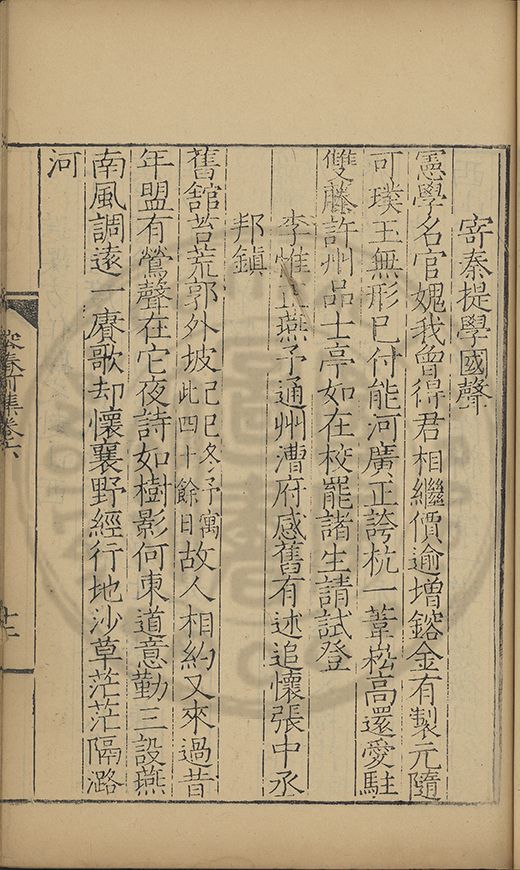 寄秦提學國聲
憲學名官媿我曾得君相繼價逾增鎔金有製元隨
可璞王無形已付能河廣正誇杭一葦崧高還愛駐
雙藤許州品士亭如在校罷諸生請試登
李惟燕予通州漕府感舊有述追懷張中丞
邦鎮
舊舘苔荒郭外坡己巳冬予寓此四十餘日故人相約又來過昔
年盟有鶯聲在它夜詩如樹影何東道意勤三設燕
南風調遠一賡歌却懷襄野經行地沙草茫茫隔潞
河
春集卷六